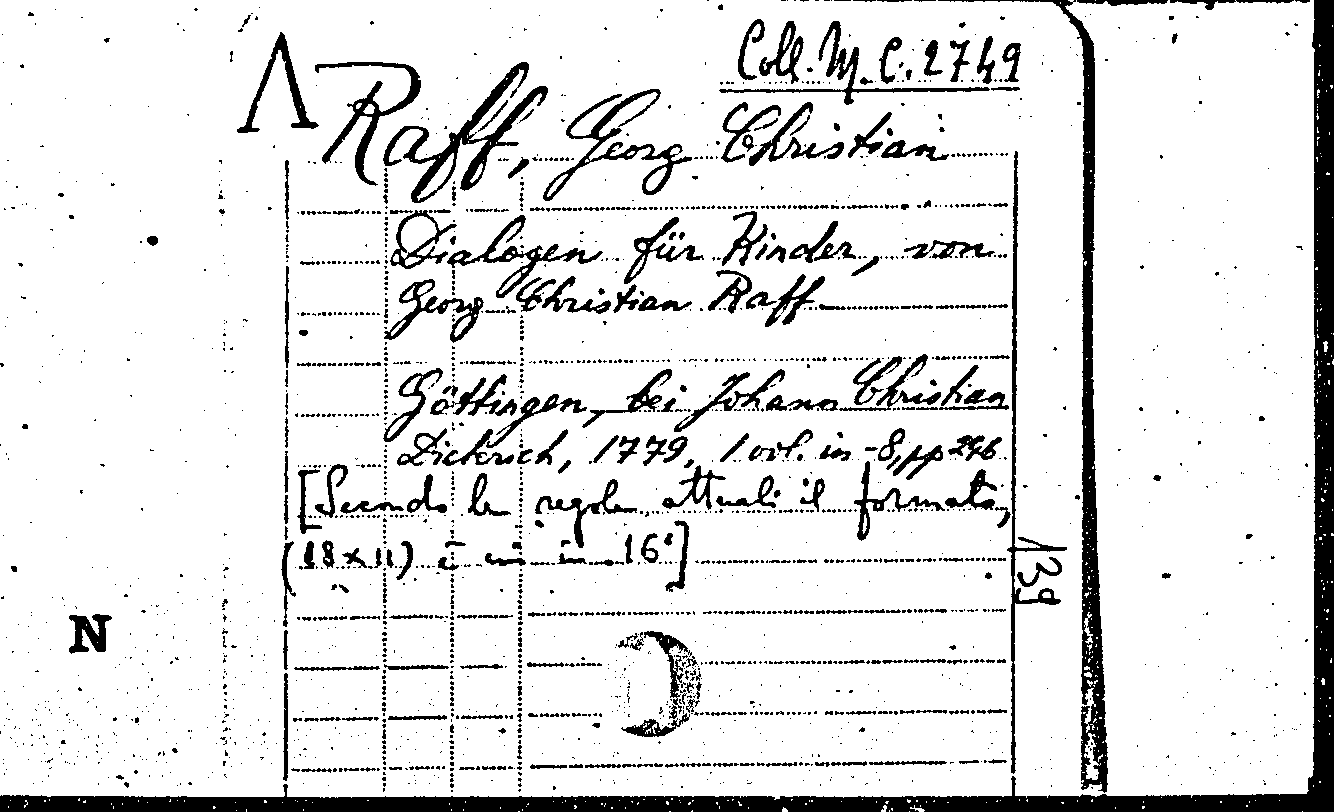 Coll. M. C. 2749
Raff, Georg Christian
Dialogen für Kinder, von
Georg Christian Raff
Göttingen, bei Johann Christian
Dieterich, 1779, 1 vol. in -8, pp 296
[Secondo le regole attuali il formato,
(18x11) è in 16°]
139
N